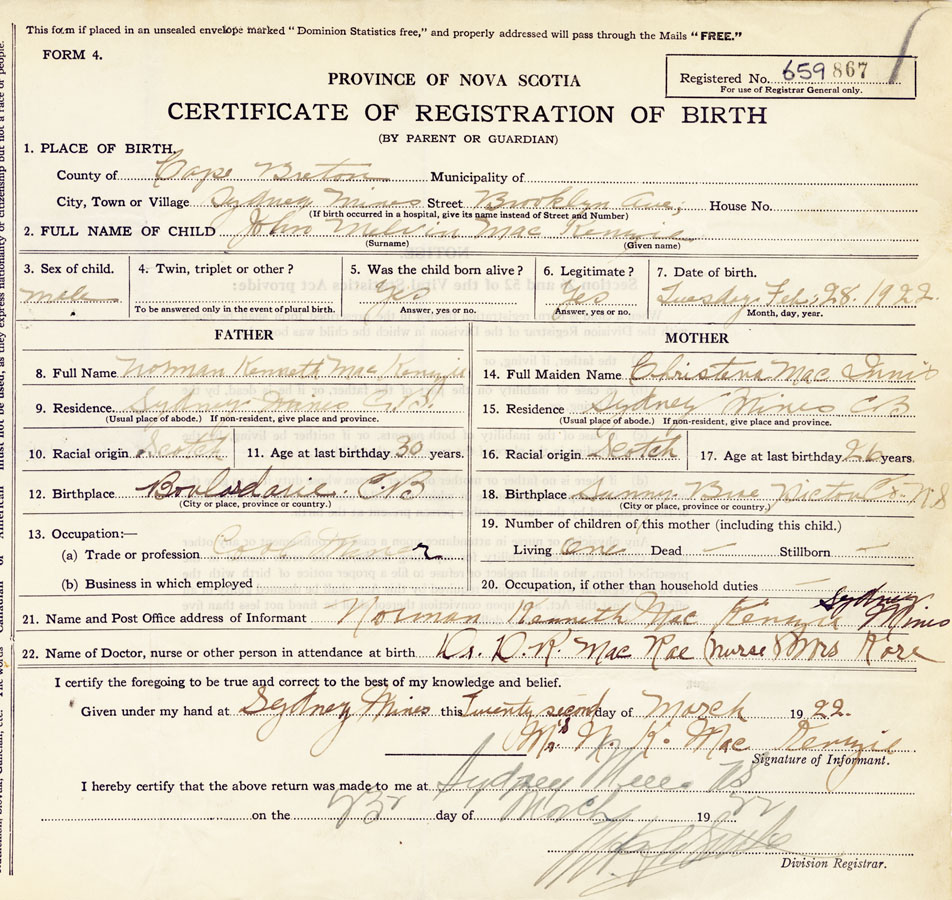 This form if placed in an unsealed envelope marked "Dominion Statistics free," and properly addressed will pass through the Mails "FREE."
FORM 4.
Registered No. 659 867
For use of Registrar General only.
PROVINCE OF NOVA SCOTIA
CERTIFICATE OF REGISTRATION OF BIRTH
(BY PARENT OR GUARDIAN)
1. PLACE OF BIRTH.
County of Cape Breton Municipality of
City, Town or Village Sydney Mines Street Brooklyn Ave, House No.
(If birth occurred in a hospital, give its name instead of Street and Number)
2. FULL NAME OF CHILD John Melvin Mac Kenzie
(Surname) (Given name)
3. Sex of child. 4. Twin, triplet or other? 5. Was the child born alive? 6. Legitimate? 7. Date of birth.
male Yes Yes Tuesday Feb, 28. 1922.
To be answered only in the event of plural birth. Answer, yes or no. Answer, yes or no. Month, day, year.
FATHER MOTHER
8. Full Name Norman Kenneth Mac Kenzie 14. Full Maiden Name Christena Mac Innis
9. Residence. Sydney Mines C.B. 15. Residence Sydney Mines CB
(Usual place of abode.) If non-resident, give place and province. (Usual place of abode.) If non-resident, give place and province.
10. Racial origin Scotch 11. Age at last birthday 30 years. 16. Racial origin Scotch 17. Age at last birthday 26 years.
12. Birthplace Boulardarie. C.B 18. Birthplace Sunny Brae Pictou Co. N.S
(City or place, province or country.) (City or place, province or country.)
13. Occupation:— 19. Number of children of this mother (including this child.)
(a) Trade or profession Coal Miner Living One Dead - Stillborn -
(b) Business in which employed 20. Occupation, if other than household duties —
21. Name and Post Office address of Informant Norman Kenneth Mac Kenzie Sydney Mines
22. Name of Doctor, nurse or other person in attendance at birth Dr. D. K. Mac Rae (nurse) Mrs Rose
I certify the foregoing to be true and correct to the best of my knowledge and belief.
Given under my hand at Sydney Mines this Twenty second day of March 1922.
Mrs N. K. Mac Kenzie
Signature of Informant.
I hereby certify that the above return was made to me at Sydney Mines NS
on the 23 day of March 1922
Division Registrar.